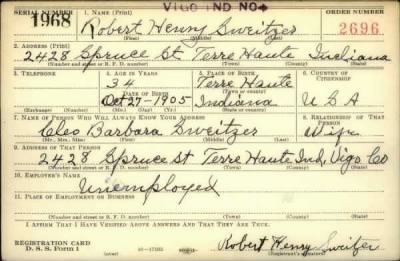 VIGO IND NO
SERIAL NUMBER 1. NAME (Print) ORDER NUMBER
1968 Robert Henry Sweitzer 2696
(First) (Middle) (Last)
2. ADDRESS (Print)
2428 Spruce St Terre Haute Indiana
(Number and street or R. F. D. number) (Town) (County) (State)
3. TELEPHONE 4. AGE IN YEARS 5. PLACE OF BIRTH 6. COUNTRY OF CITIZENSHIP
34 Terre Haute
DATE OF BIRTH (Town or county)
Oct-27-1905 Indiana U S A
(Exchange) (Number) (Mo.) (Day) (Yr.) (State or country)
7. NAME OF PERSON WHO WILL ALWAYS KNOW YOUR ADDRESS 8. RELATIONSHIP OF THAT PERSON
Cleo Barbara Sweitzer Wife
(Mr., Mrs., Miss) (First) (Middle) (Last)
9. ADDRESS OF THAT PERSON
2428 Spruce St Terre Haute Ind, Vigo Co
(Number and street or R. F. D. number) (Town) (County) (State)
10. EMPLOYER'S NAME
Unemployed
11. PLACE OF EMPLOYMENT OR BUSINESS
(Number and street or R. F. D. number) (Town) (County) (State)
I AFFIRM THAT I HAVE VERIFIED ABOVE ANSWERS AND THAT THEY ARE TRUE.
REGISTRATION CARD
D. S. S. Form 1 (over) Robert Henry Sweitzer
(Registrant's signature)